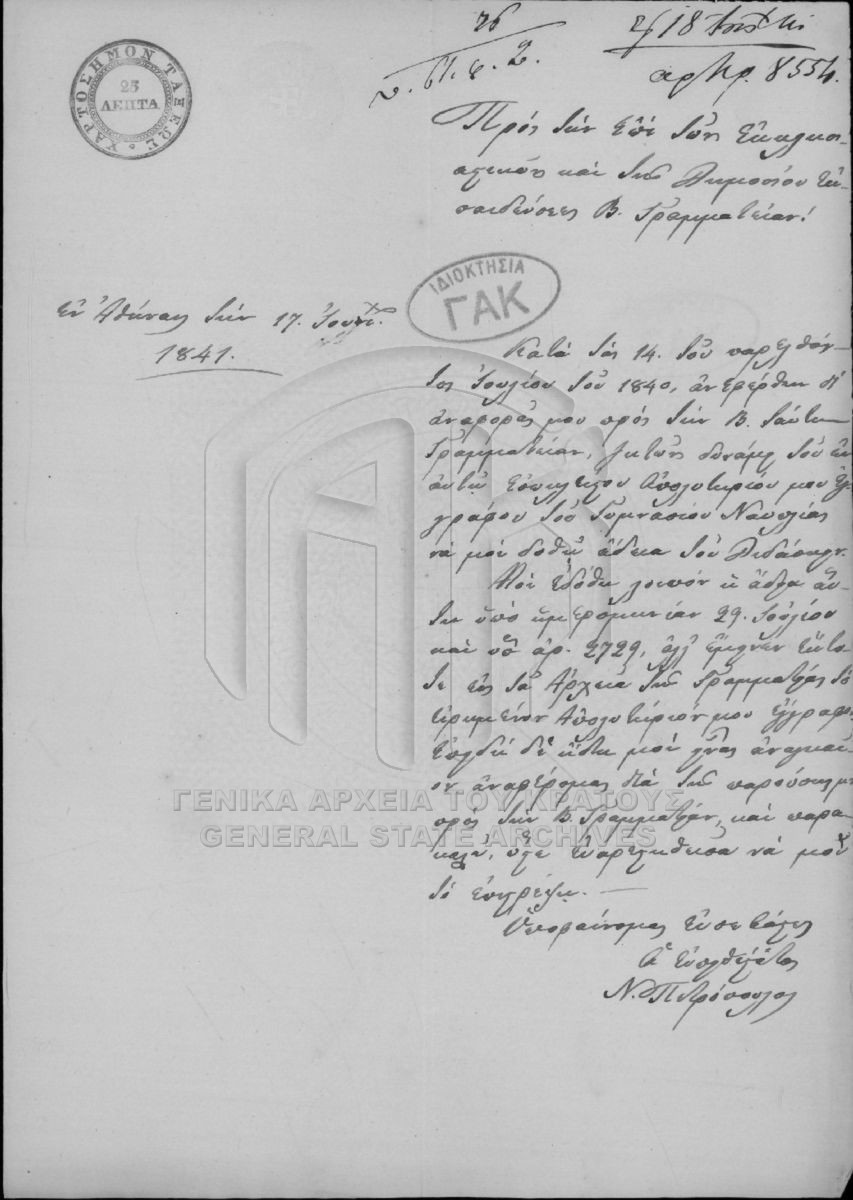 ΧΑΡΤΟΣΗΜΟΝ ΤΑΞΕΩΣ
25
ΛΕΠΤΑ
26
18
αριθ. 8554.
Πρός τήν ἐπί τῶν Ἐκκλησι-
αστικῶν καί τῆς Δημοσίου Ἐκ-
παιδεύσεως Β. Γραμματείαν!
ΙΔΙΟΚΤΗΣΙΑ
ΓΑΚ
Ἐν Ἀθήναις τήν 17.
1841.
Κατά τάς 14. τοῦ παρελθόν-
τος Ἰουλίου τοῦ 1840, ἀνεφέρθην δι'
ἀναφορᾶς μου πρός τήν Β. ταύτην
Γραμματείαν, δυνάμει τοῦ ἐν
αὐτῇ Ἀπολυτηρίου μου ἐγ-
γράφου τοῦ Γυμνασίου Ναυπλίας
νά μοί δοθῇ ἄδεια τοῦ
Μοί ἐδόθη λοιπόν ἡ ἄδεια αὕ-
τη ὑπό ἡμερομηνίαν 29. Ἰουλίου
καί ὑπ' ἀρ. 2729, ἀλλ' ἔμεινεν ἔκτο-
τε εἰς τά Ἀρχεῖα τῆς Γραμματείας τό
εἰρημένον Ἀπολυτήριόν μου ἔγγραφον
Ἐπειδή δέ ἤδη μοί εἶναι ἀναγκαῖ-
ον ἀναφέρομαι διά τῆς παρούσης μου
πρός τήν Β. Γραμματείαν, καί παρα-
καλῶ, εὐαρεστηθεῖσα νά μοῦ
τό ἐπιστρέψῃ.
Ὑποφαίνομαι εὐσεβάστως
Ὁ εὐπειθέστατος
Ν. Πετρόπουλος
ΓΕΝΙΚΑ ΑΡΧΕΙΑ ΤΟΥ ΚΡΑΤΟΥΣ
GENERAL STATE ARCHIVES